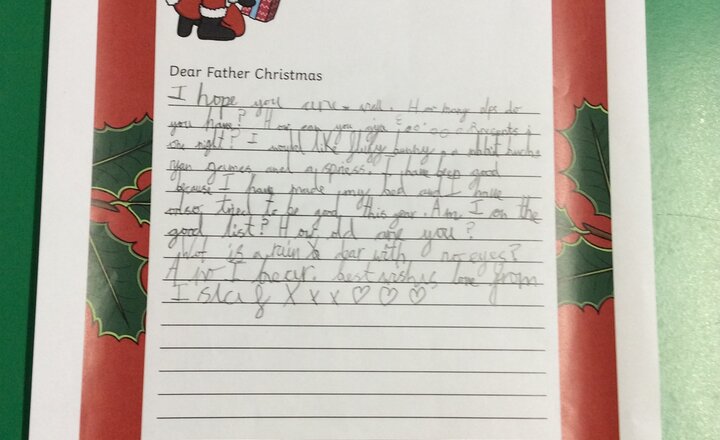 Dear Father Christmas
I hope you are well. How many elfs do
you have? How can you giv presents in
one night? I would like fluffy bunny a rabbit
games and a spriss. I have been good
because I have made my bed and I have
tried to be good this year. Am I on the
good list? How old are you?
Wot is a rain dear with no eyes?
A no I deer. best wishis love from
Isla x x x ♡ ♡ ♡